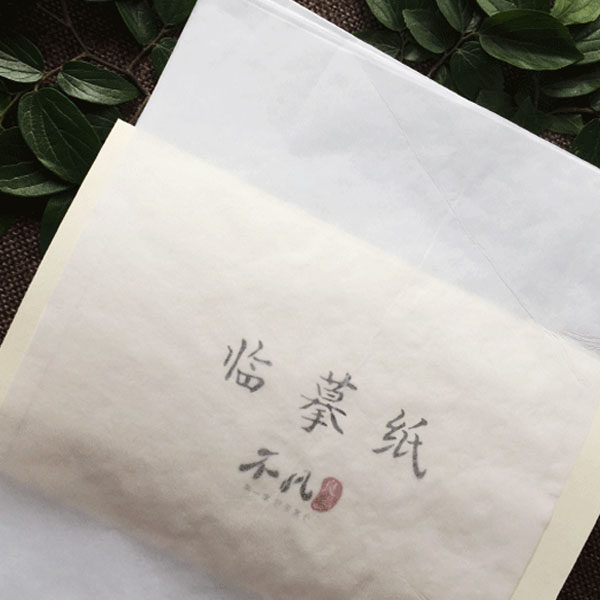 临摹纸
不凡